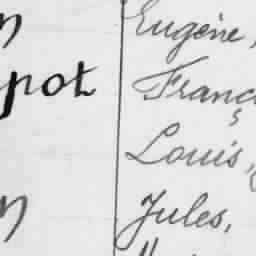 Eugène,
pot Franç
Louis,
Jules,